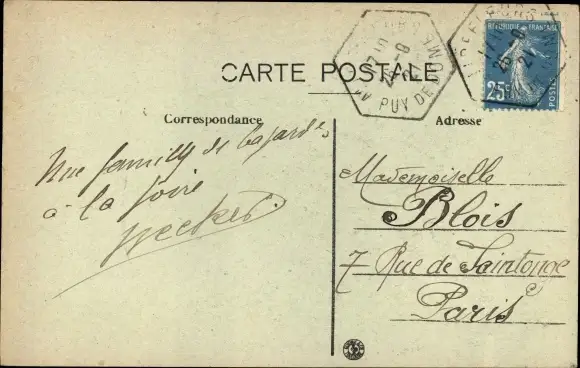 CARTE POSTALE
Correspondance
Une famille de
à la foire
Adresse
Mademoiselle
Blois
7 Rue de Saintonge
Paris
PUY DE DOME
REPUBLIQUE FRANÇAISE
25c
POSTES